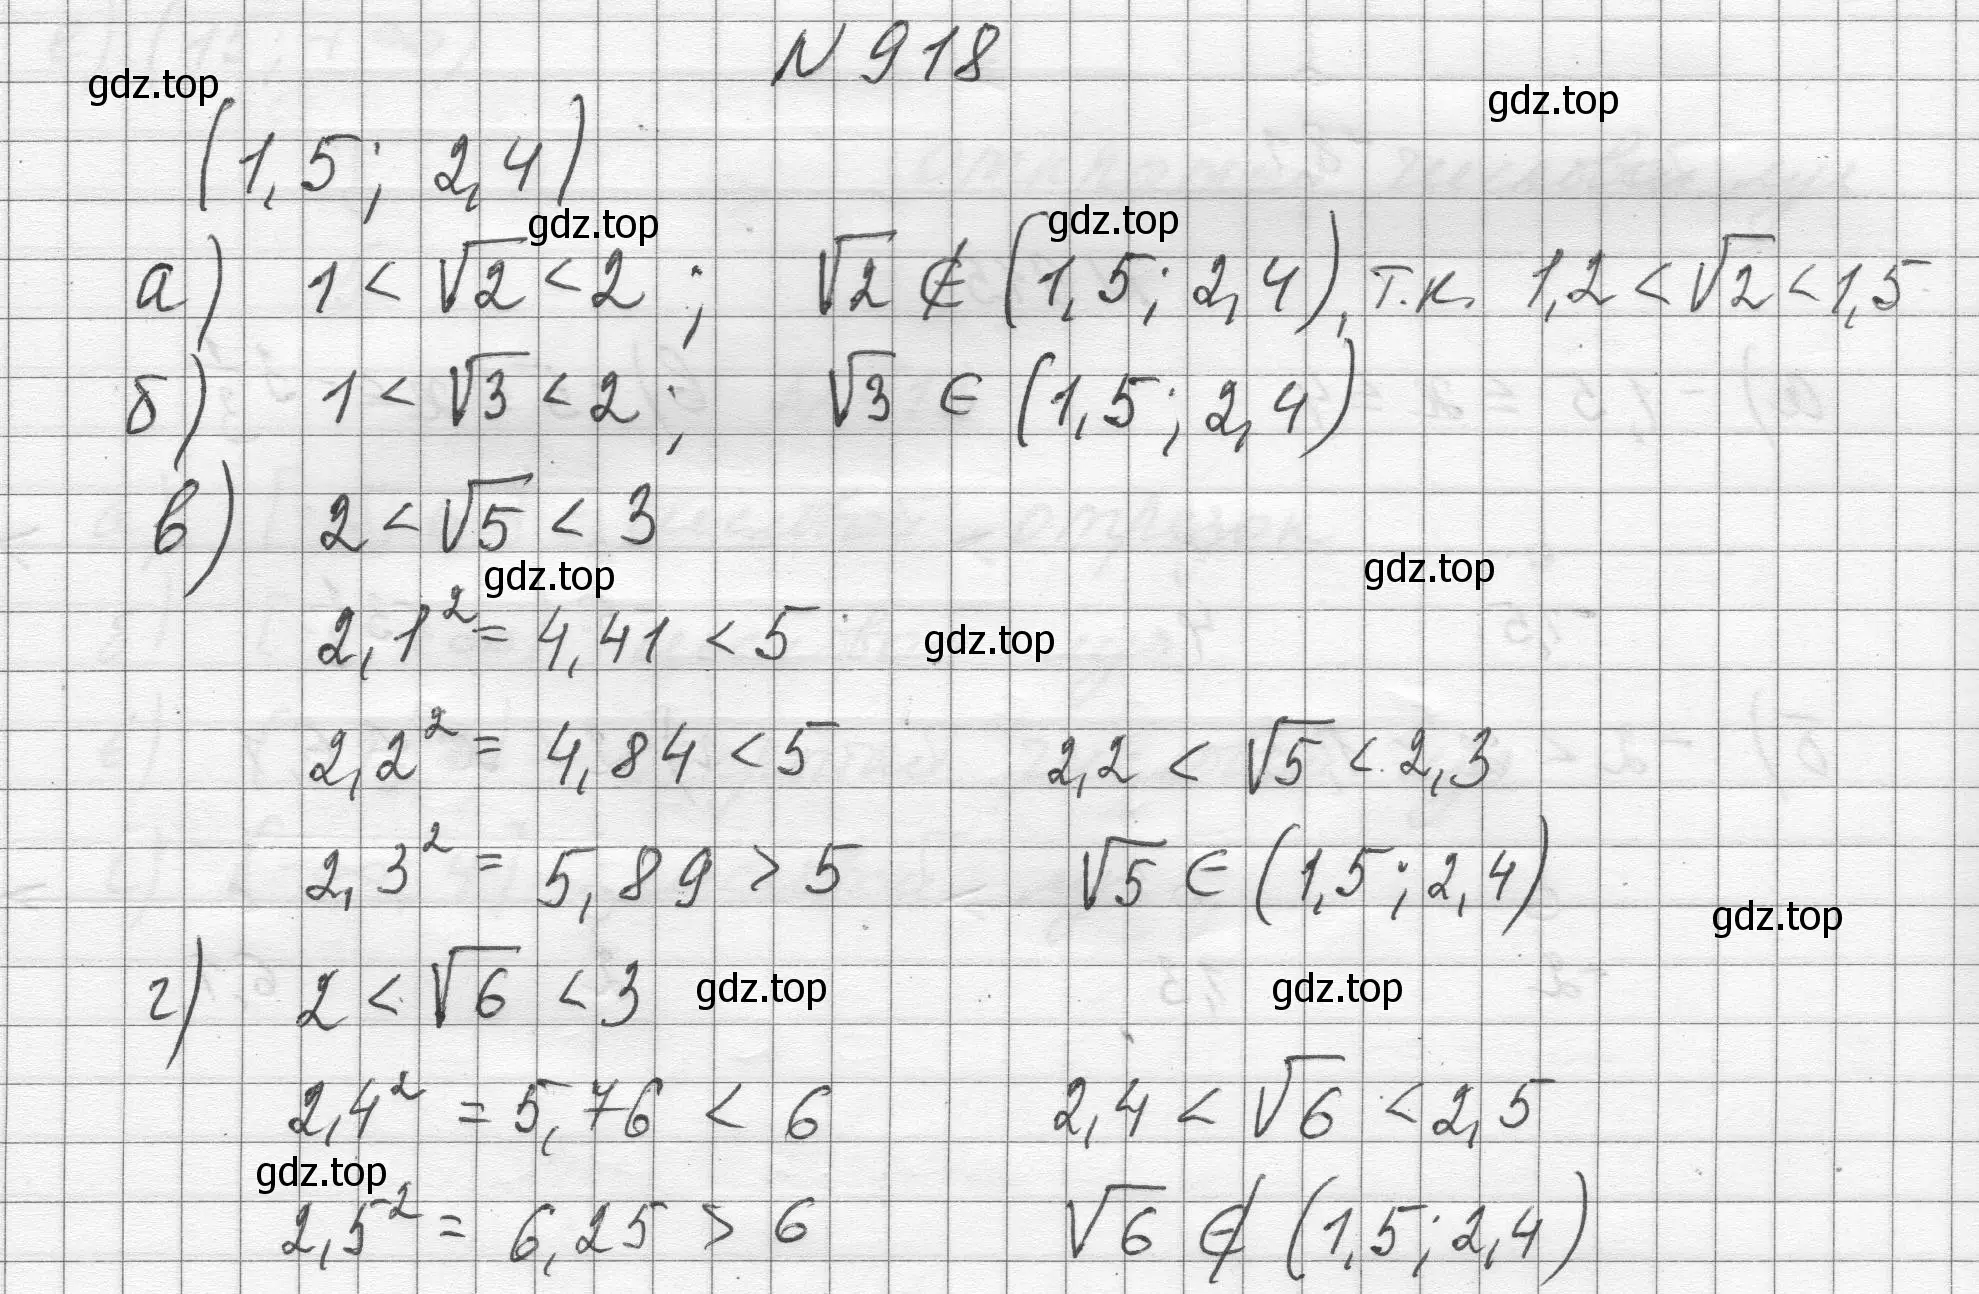 N 918
gdz.top
gdz.top
(1,5; 2,4)
gdz.top
gdz.top
а) 1 < √2 < 2; √2 ∉ (1,5; 2,4), т.к. 1,2 < √2 < 1,5
б) 1 < √3 < 2; √3 ∈ (1,5; 2,4)
в) 2 < √5 < 3
gdz.top
gdz.top
2,1² = 4,41 < 5
gdz.top
2,2² = 4,84 < 5 2,2 < √5 < 2,3
2,3² = 5,89 > 5 √5 ∈ (1,5; 2,4)
gdz.top
г) 2 < √6 < 3
gdz.top
gdz.top
2,4² = 5,76 < 6 2,4 < √6 < 2,5
gdz.top
2,5² = 6,25 > 6 √6 ∉ (1,5; 2,4)